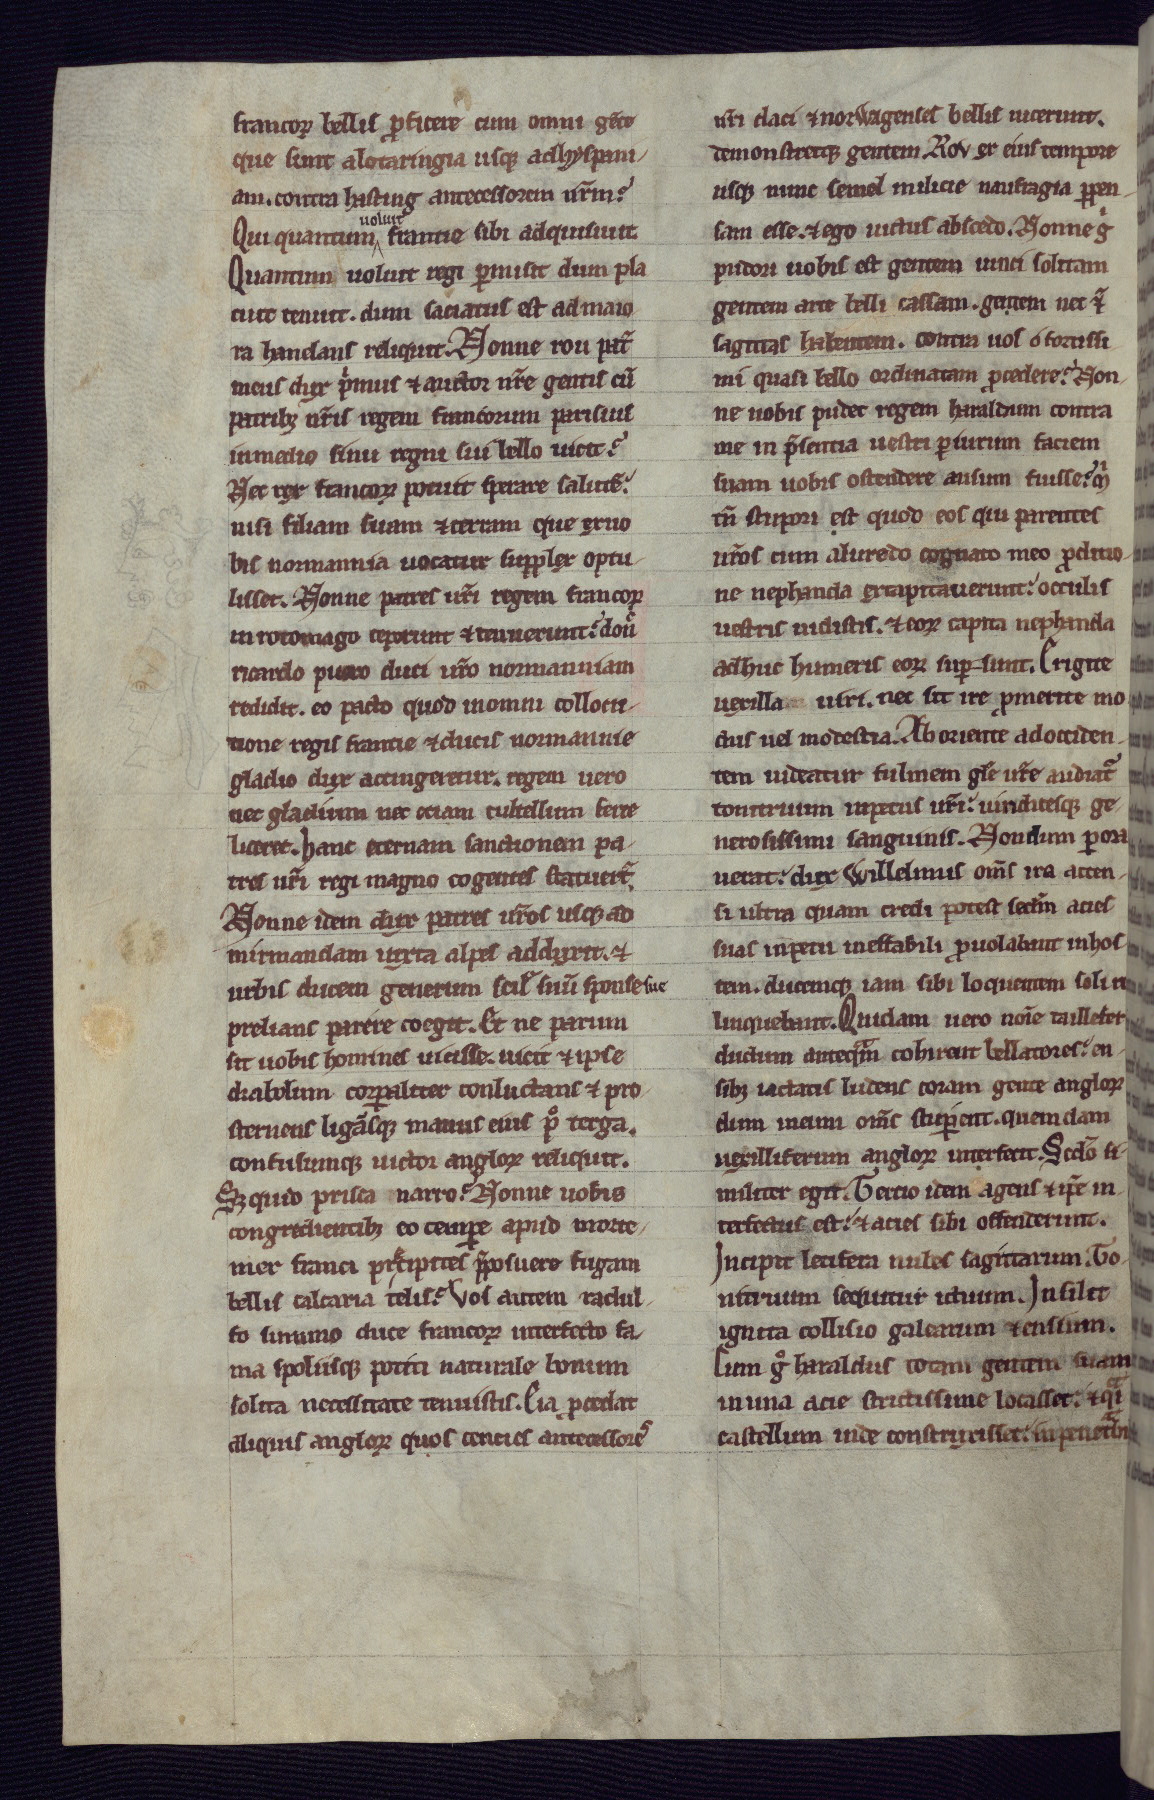 francoꝝ bellis ꝓficere cum omni gẽte
que sunt alotaringia usqꝫ adhyspani-
am. contra hasting antecessorem ur̃m?
Qui quantum uoluit francie sibi adquisiuit.
Quantum uoluit regi ꝑmisit dum pla
cuit tenuit. dum saciatus est ad maio
ra hanelans reliquit. Nonne rou pat̃
meus dux p̾mus & auctor nr̃e gentis cũ
patribꝫ ur̃is regem francorum parisius
inmedio sinu regni sui bello uicit?
Nec rex francoꝝ potuit sperare salutẽ?
nisi filiam suam & terram que exuo
bis normannia uocatur supplex optu-
lisset. Nonne patres ur̃i regem francoꝝ
in rotomago ceperunt & tenuerunt? don̾
ricardo puero duci ur̃o normanniam
redidit. eo pacto quod inomni collocu-
tione regis francie & ducis normannie
gladio dux accingeretur. regem uero
nec gladium nec etiam cultellum ferre
liceret. hanc eternam sanctionem pa-
tres ur̃i regi magno cogentes statuer̃t.
Nonne idem dux patres ur̃os usqꝫ ad
mirmandam iuxta alpes adduxit. &
urbis ducem generum scil̃ suũ sponse sue
prelians parere coegit. Et ne parum
sit uobis homines uicisse. uicit & ipse
diabolum corꝑaliter conluctans & pro-
sternens ligãsqꝫ manus eius p᷒ terga.
confusumqꝫ uictor angloꝝ reliquit.
Sꝫ quid prisca narro? Nonne uobis
congredientibꝫ eo tempꝛe apud morte-
mer franci precipites p̃posuere fugam
bellis calcaria telis? Vos autem radul-
fo summo duce francoꝝ interfecto fa-
ma spoliisqꝫ potiti naturale bonum
solita necessitate tenuistis. Eia ꝓcedat
aliquis angloꝝ quos centies antecessores
ur̃i daci & norwagenses bellis uicerunt.
demonstretqꝫ gentem Rov ex eius tempore
usqꝫ nunc semel milicie naufragia ꝑpen-
sam esse. & ego uictus abscedo. Nonne g̾
pudori uobis est gentem uinci solitam
gentem arte belli cassam. gentem nec q̾
sagittas habentem. contra uos o fortissi
mi quasi bello ordinatam ꝓcedere? Non-
ne uobis pudet regem haraldum contra
me in p̃sentia uestri ꝑiurum faciem
suam uobis ostendere ausum fuisse? M̾
tñ stupori est quod eos qui parentes
ur̃os cum aluredo cognato meo ꝓditio-
ne nephanda excapitauerunt? occulis
uestris uidistis. & eoꝝ capita nephanda
adhuc humeris eoꝝ suꝑ-sunt. Erigite
uexilla uiri. nec sit ire ꝓmerite mo
dus uel modestia. Ab oriente ad occiden-
tem uideatur fulmen gl̃e ur̃e audiat̾
tonitruum inpetus ur̃i? uindictesqꝫ ge-
nerosissimi sanguinis. Nondum ꝑora
uerat? dux Willelmus om̃s ira accen-
si ultra quam credi potest scdm̃ acies
suas inpetu ineffabili ꝓuolabant in hos-
tem. ducemqꝫ iam sibi loquentem soli re
linquebant. Quidam uero nom̃e taillefer
dudum anteq̃m cohirent bellatores? en-
sibꝫ iactatis ludens coram gente angloꝝ
dum ineum om̃s stuꝑent. quendam
uexilliferum angloꝝ interfecit. Scdõ si-
militer egit. Tercio idem agens & ip̃e in-
terfectus est? & acies sibi offenderunt.
Incipit letifera nubes sagittarum. To-
nitruum sequitur ictuum. Insilit
ignita collisio galearum & ensium.
Cum g̊ haraldus totam gentem suam
inuna acie strictissime locasset. & q̾i
castellum inde construxisset? inpenetrabi